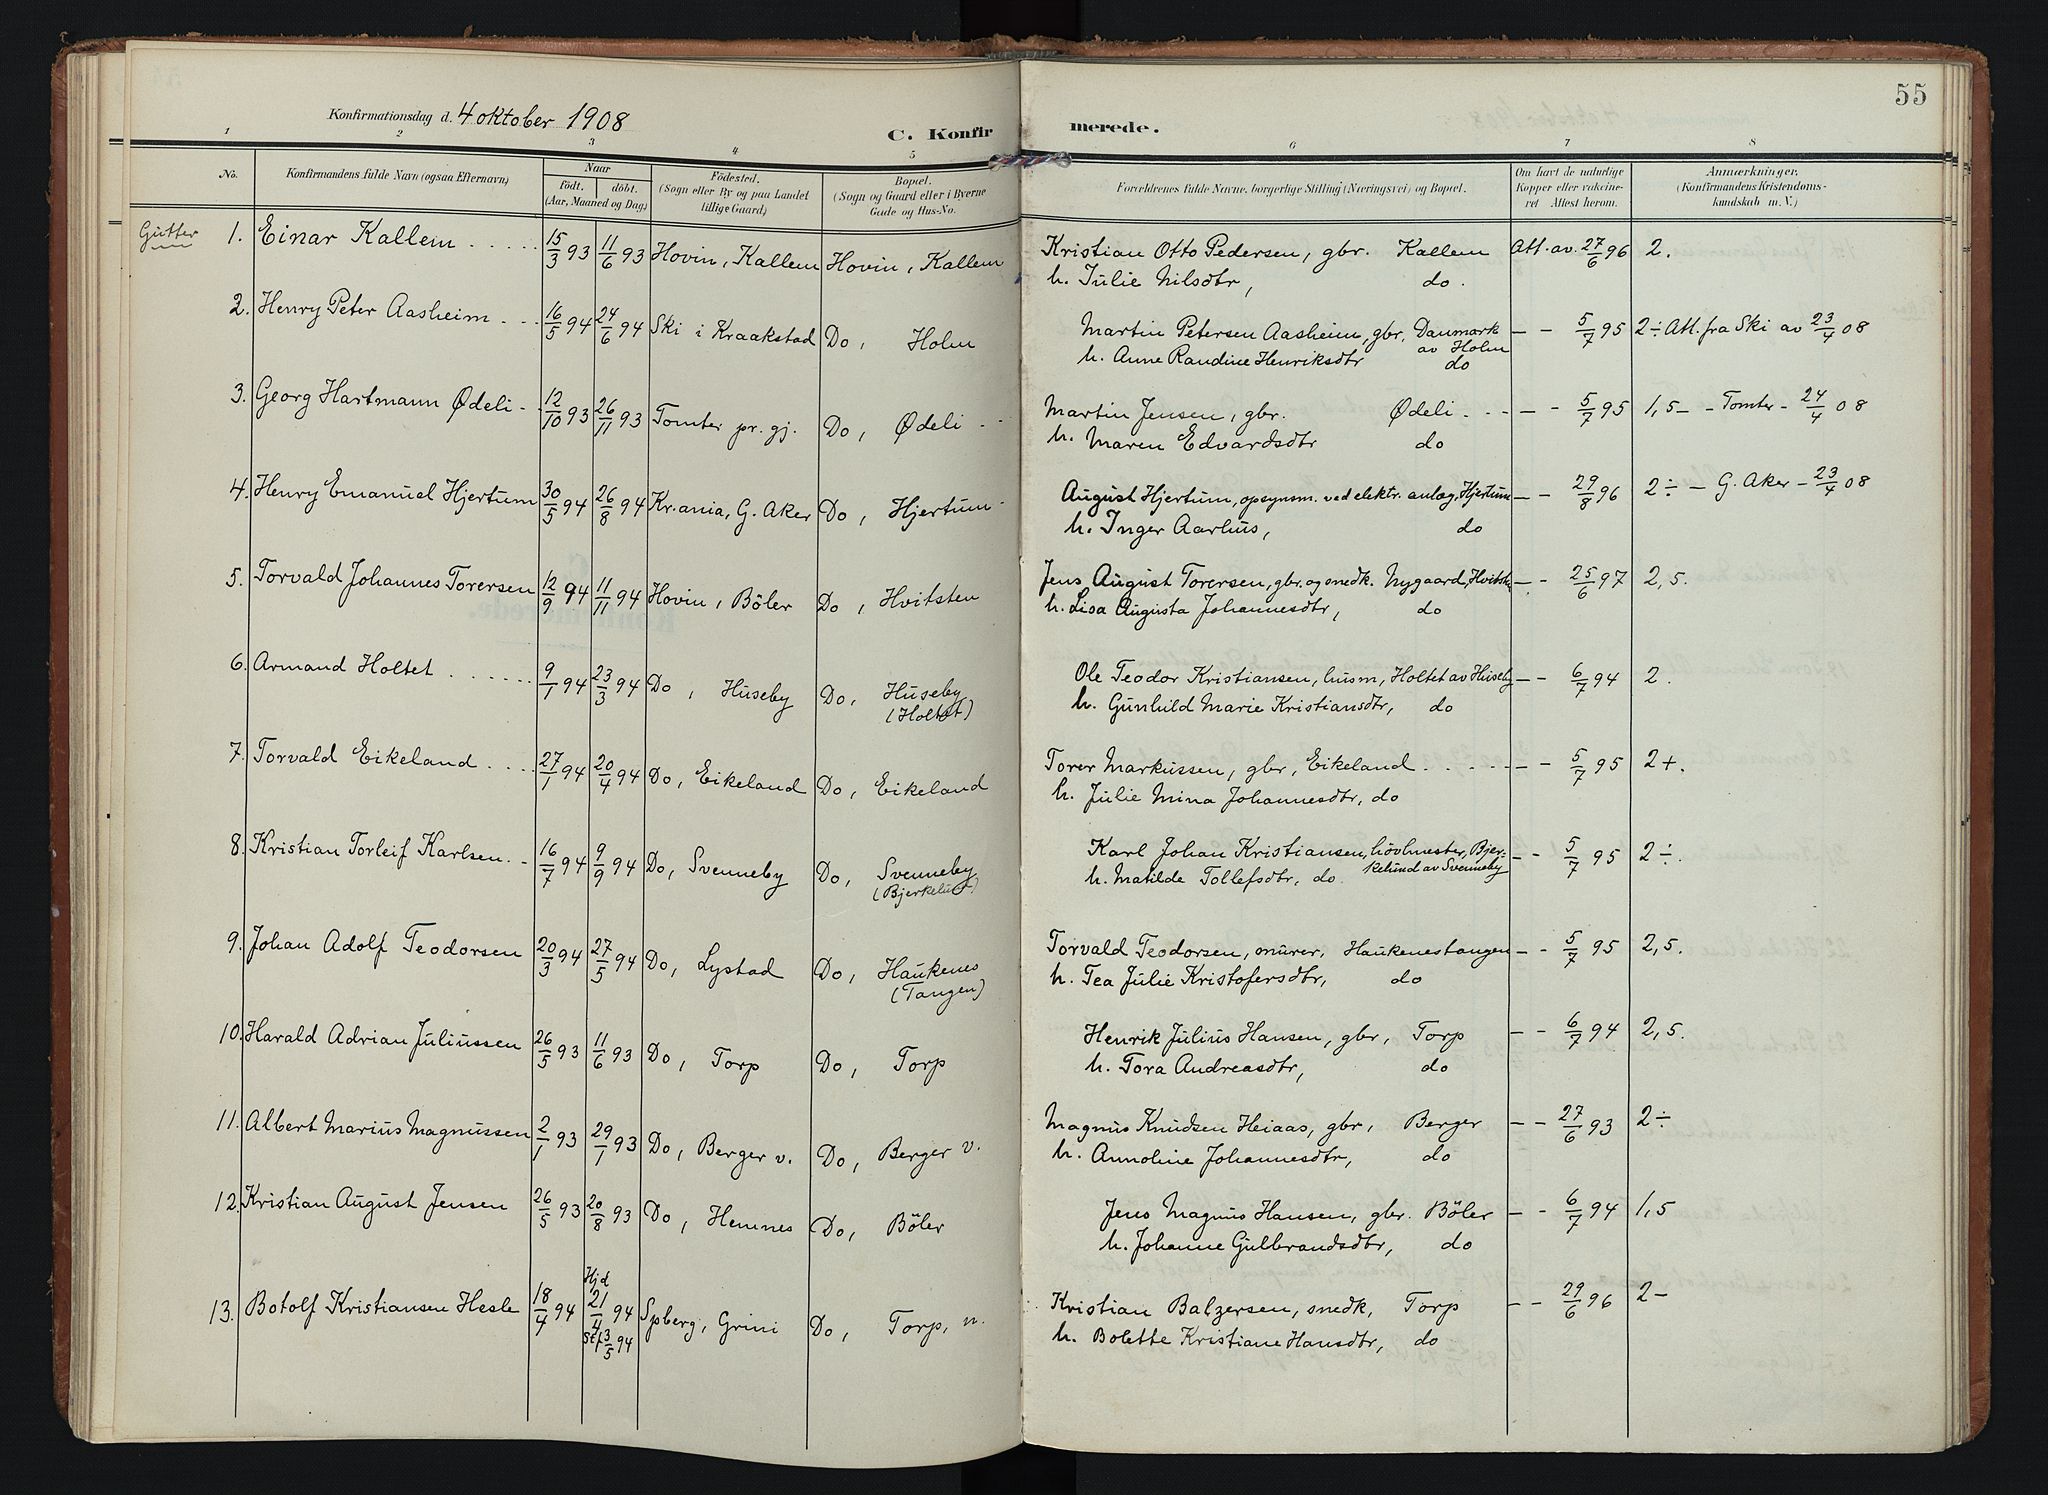 55
Konfirmationsdag d. 4 oktober 1908
C. Konfirmerede.
1 2 3 4 5 6 7 8
No. Konfirmandens fulde Navn (ogsaa Efternavn) Naar födt. döbt. (Aar, Maaned og Dag) Födested. (Sogn eller By og paa Landet tillige Gaard) Bopæl. (Sogn og Gaard eller i Byerne Gade og Hus-No. Forældrenes fulde Navne, borgerlige Stilling (Næringsvei) og Bopæl. Om havt de naturlige Kopper eller vakcineret Attest herom. Anmærkninger. (Konfirmandens Kristendomskundskab m. V.)
Gutter
1. Einar Kallem 15/3 93 11/6 93 Hovin, Kallem Hovin, Kallem Kristian Otto Pedersen, gbr. Kallem Att. av. 27/6 96 2.
h. Julie Nilsdtr, do.
2. Henry Peter Aasheim 16/5 94 24/6 94 Ski i Kraakstad Do, Holm Martin Petersen Aasheim, gbr, Danmark av Holm - - 5/7 95 2÷ Att. fra Ski av 23/4 08
h. Anne Randine Henriksdtr do
3. Georg Hartmann Ødeli 12/10 93 26/11 93 Tomter pr. gj. Do, Ødeli Martin Jensen, gbr. Ødeli - - 5/7 95 1,5 - - Tomter - 24/4 08
h. Maren Edvardsdtr do
4. Henry Emanuel Hjertum 30/5 94 26/8 94 Kr.ania, G. Aker Do, Hjertum August Hjertum, opsynsm. ved elektr. anlæg, Hjertum - - 29/8 96 2÷ - G. Aker - 23/4 08
h. Inger Aarhus, do
5. Torvald Johannes Torersen 12/9 94 11/11 94 Hovin, Böler Do, Hvitsten Jens August Torersen, gbr. og snedk. Nygaard, Hvitsten - - 25/6 97 2,5.
h. Lisa Augusta Johannesdtr, do
6. Armand Holtet 9/1 94 23/3 94 Do, Huseby Do, Huseby (Holtet) Ole Teodor Kristiansen, husm, Holtet av Huseby - - 6/7 94 2.
h. Gunhild Marie Kristiansdtr, do
7. Torvald Eikeland 27/1 94 20/4 94 Do, Eikeland Do, Eikeland Torer Markussen, gbr, Eikeland - - 5/7 95 2+.
h. Julie Mina Johannesdtr, do
8. Kristian Torleif Karlsen 16/7 94 9/9 94 Do, Svenneby Do, Svenneby (Bjerkelund) Karl Johan Kristiansen, hövlmester, Bjerkelund av Svenneby - - 5/7 95 2÷.
h. Matilde Tollefsdtr, do.
9. Johan Adolf Teodorsen 20/3 94 27/5 94 Do, Lystad Do, Haukenes (Tangen) Torvald Teodorsen, murer, Haukenestangen - - 5/7 95 2,5.
h. Tea Julie Kristofersdtr, do
10. Harald Adrian Juliussen 26/5 93 11/6 93 Do, Torp Do, Torp Henrik Julius Hansen, gbr, Torp - - 6/7 94 2,5.
h. Tora Andreasdtr, do
11. Albert Marius Magnussen 2/1 93 29/1 93 Do, Berger v. Do, Berger v. Magnus Knudsen Heiaas, gbr, Berger - - 27/6 93 2÷
h. Annoline Johannesdtr, do
12. Kristian August Jensen 26/5 93 20/8 93 Do, Hemnes Do, Böler Jens Magnus Hansen, gbr. Böler - - 6/7 94 1,5
h. Johanne Gulbrandsdtr, do
13. Botolf Kristiansen Hesle 18/4 94 Hjd 21/4 94 St.f. 3/5 94 Spberg, Grini Do, Torp, n. Kristian Balzersen, snedk, Torp - - 29/6 96 2-
h. Bolette Kristiane Hansdtr, do